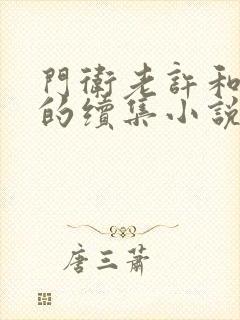 門衛老許和
的續集小說
唐三蕭